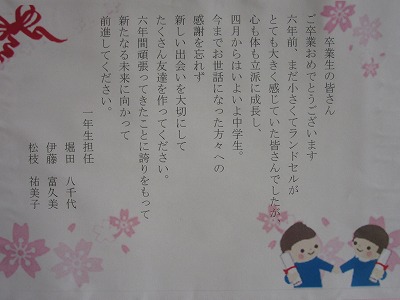 卒業生の皆さん
ご卒業おめでとうございます
六年前、まだ小さくてランドセルが
とても大きく感じていた皆さんでしたが、
心も体も立派に成長し、
四月からはいよいよ中学生。
今までお世話になった方々への
感謝を忘れず
新しい出会いを大切にして
たくさん友達を作ってください。
六年間頑張ってきたことに誇りをもって
新たなる未来に向かって
前進してください。
一年生担任
堀田 八千代
伊藤 富久美
松枝 祐美子